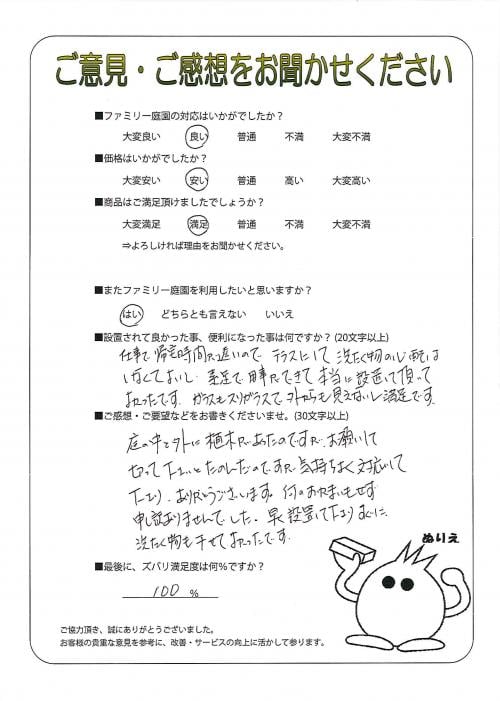 ご意見・ご感想をお聞かせください
■ファミリー庭園の対応はいかがでしたか？
大変良い 良い 普通 不満 大変不満
■価格はいかがでしたか？
大変安い 安い 普通 高い 大変高い
■商品はご満足頂けましたでしょうか？
大変満足 満足 普通 不満 大変不満
⇒よろしければ理由をお聞かせください。
■またファミリー庭園を利用したいと思いますか？
はい どちらとも言えない いいえ
■設置されて良かった事、便利になった事は何ですか？(20文字以上)
仕事で帰宅時間が遅いので テラスにして 洗たく物の心配は
しなくていいし 本当に設置して頂って
よかったです。ガラスもスリガラスで外からも見えないし満足です。
■ご感想・ご要望などをお書きくださいませ。(30文字以上)
庭の中と外に植木があったのですが、お願いして
切って下さいとたのんだのですが気持ちよく対応して
下さり、ありがとうございます。何のおかまいもせず
申し訳ありませんでした。早く設置して下さりすぐに
洗たく物も干せてよかったです。
ぬりえ
■最後に、ズバリ満足度は何%ですか？
100 %
ご協力頂き、誠にありがとうございました。
お客様の貴重な意見を参考に、改善・サービスの向上に活かして参ります。